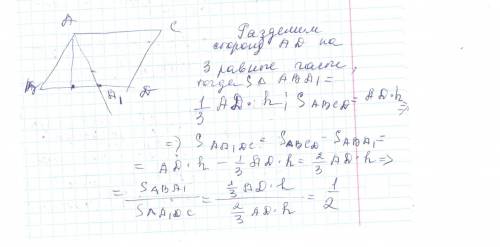 A C
B A₁ D
Разделим
сторону AD на
3 равные части,
тогда S△ ABA₁ =
1/3 AD·h; SABCD = AD·h ⇒
⇒ SAA₁DC = SABCD - SABA₁ =
= AD·h - 1/3 AD·h = 2/3 AD·h ⇒
= SABA₁/SAA₁DC = 1/3 AD·h / 2/3 AD·h = 1/2